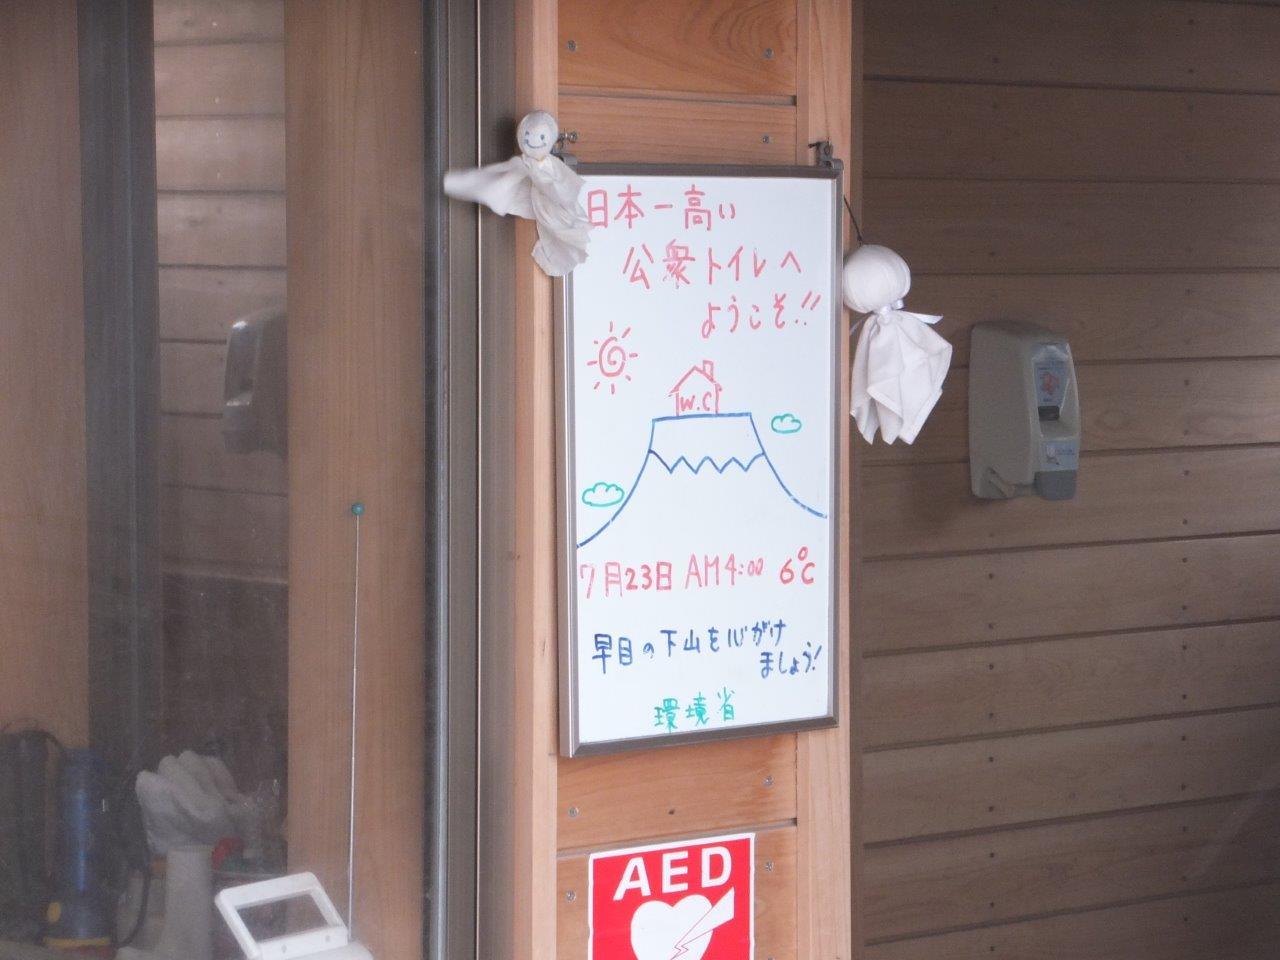 日本一高い
公衆トイレへ
ようこそ!!
W.C
7月23日 AM4:00 6℃
早目の下山を心がけ
ましょう!
環境省
AED